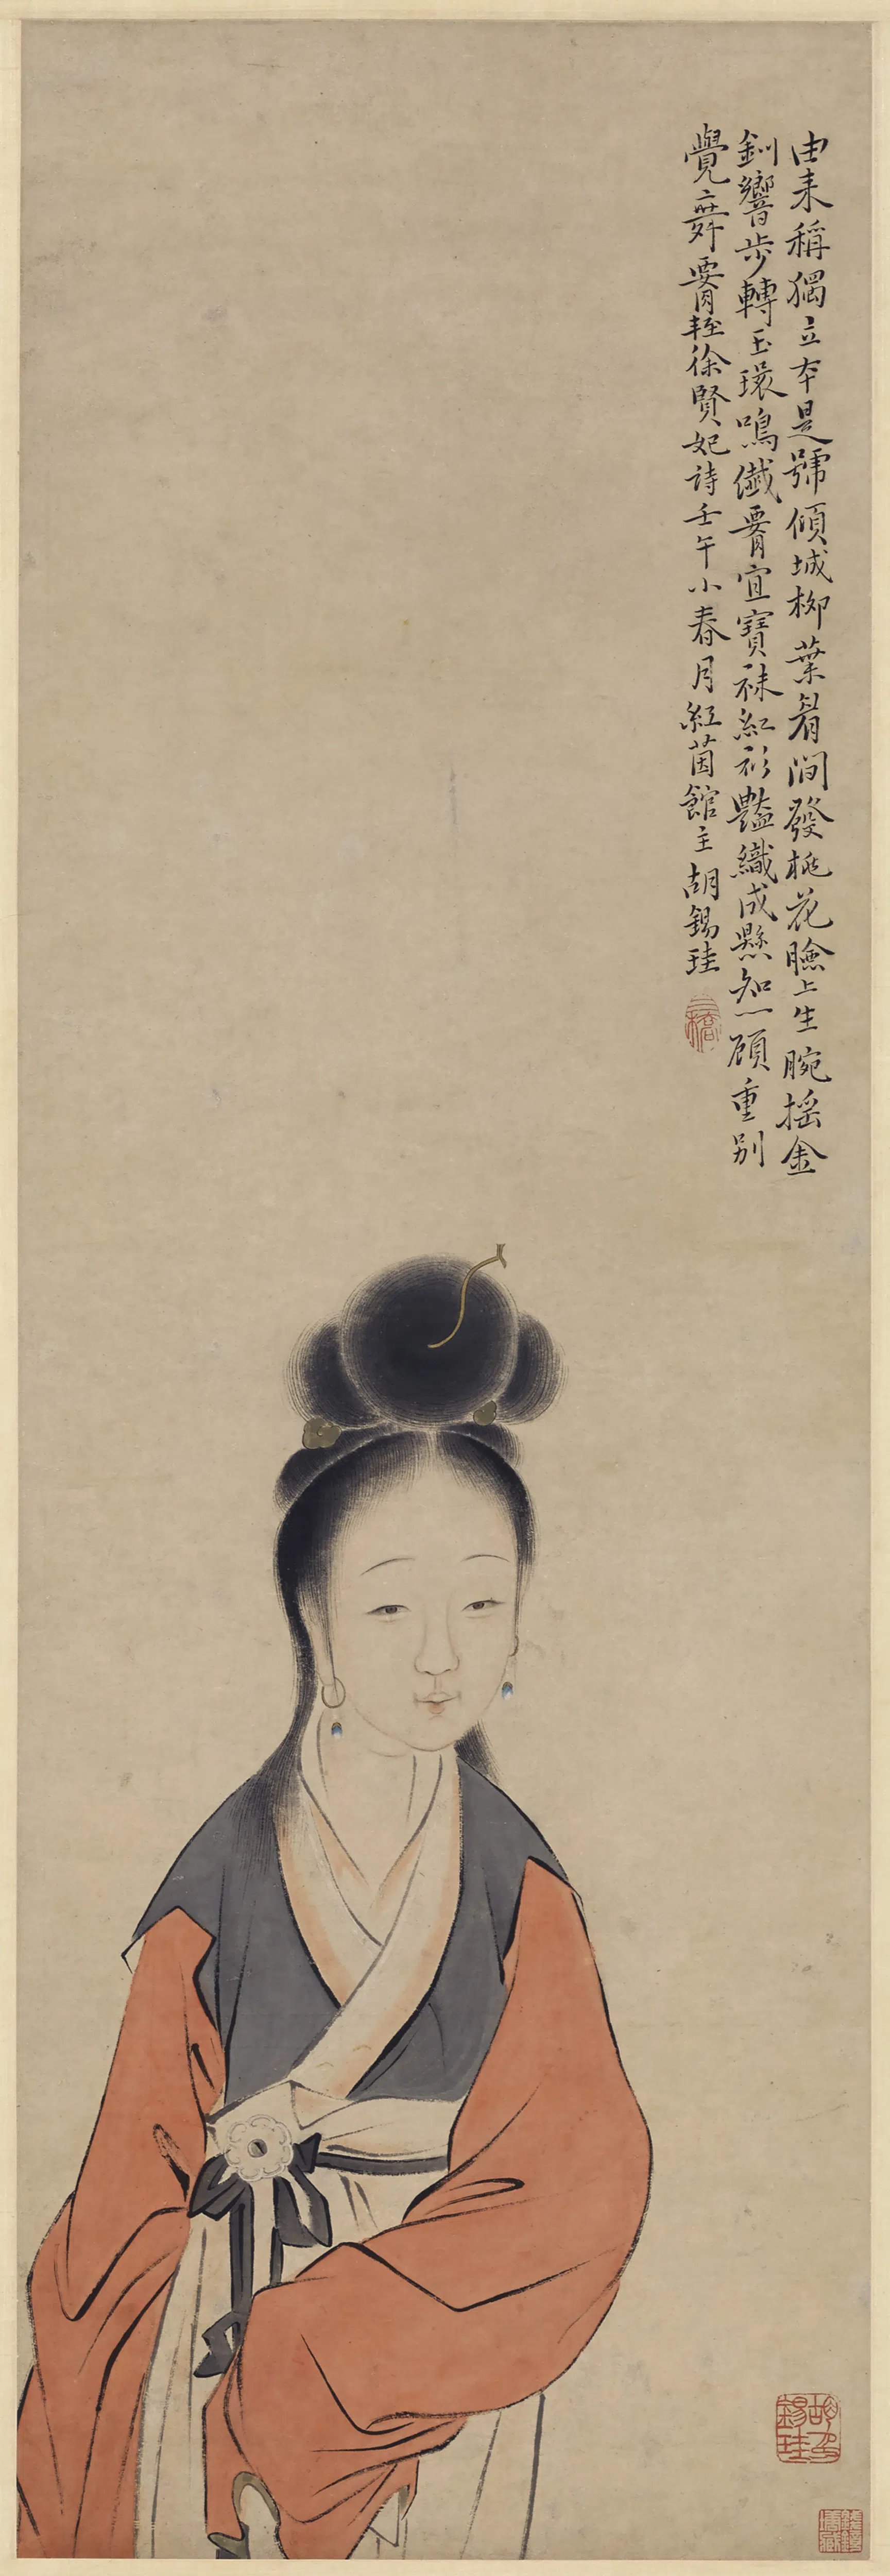 由来稱獨立本是號傾城柳葉眉間發桃花臉上生腕摇金
釧響步轉玉環鳴纎𦝫宜寶袜紅衫豔織成懸知一顧重别
覺舞𦝫輕徐賢妃詩壬午小春月紅茵館主胡錫珪
三橋
胡錫珪印